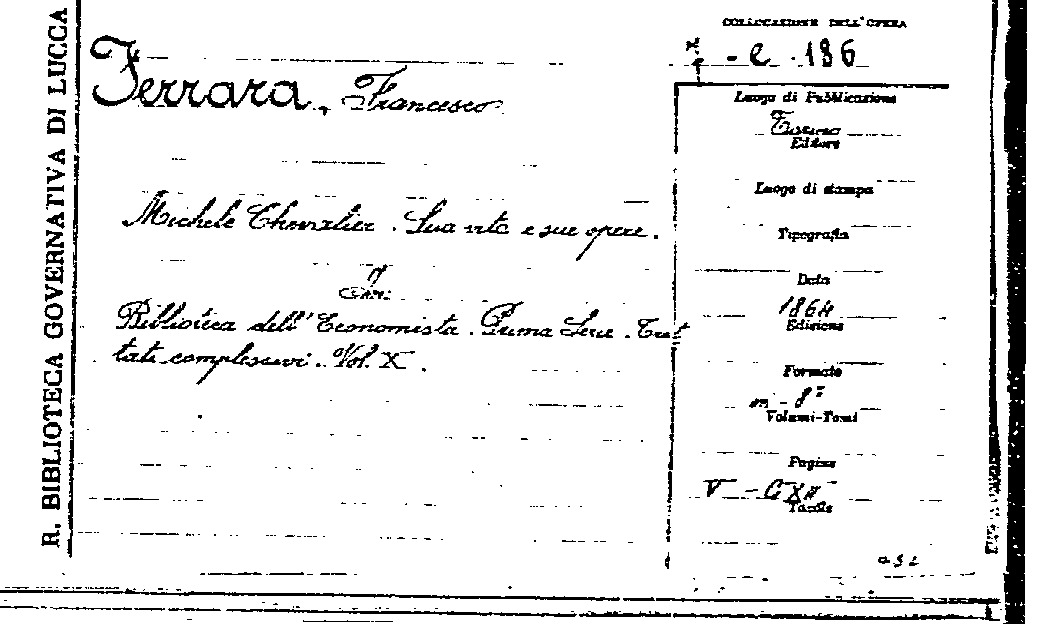 R. BIBLIOTECA GOVERNATIVA DI LUCCA
COLLOCAZIONE DELL'OPERA
- e - 186
Ferrara, Francesco
Luogo di Pubblicazione
Torino
Editore
Luogo di stampa
Michele Chevalier. Sua vita e sue opere.
Tipografia
Data
In:
1864
Edizione
Biblioteca dell'Economista. Prima Serie. Trat
tati complessivi. Vol. X.
Formato
in - 8º
Volumi-Tomi
Pagine
V -
Tavole